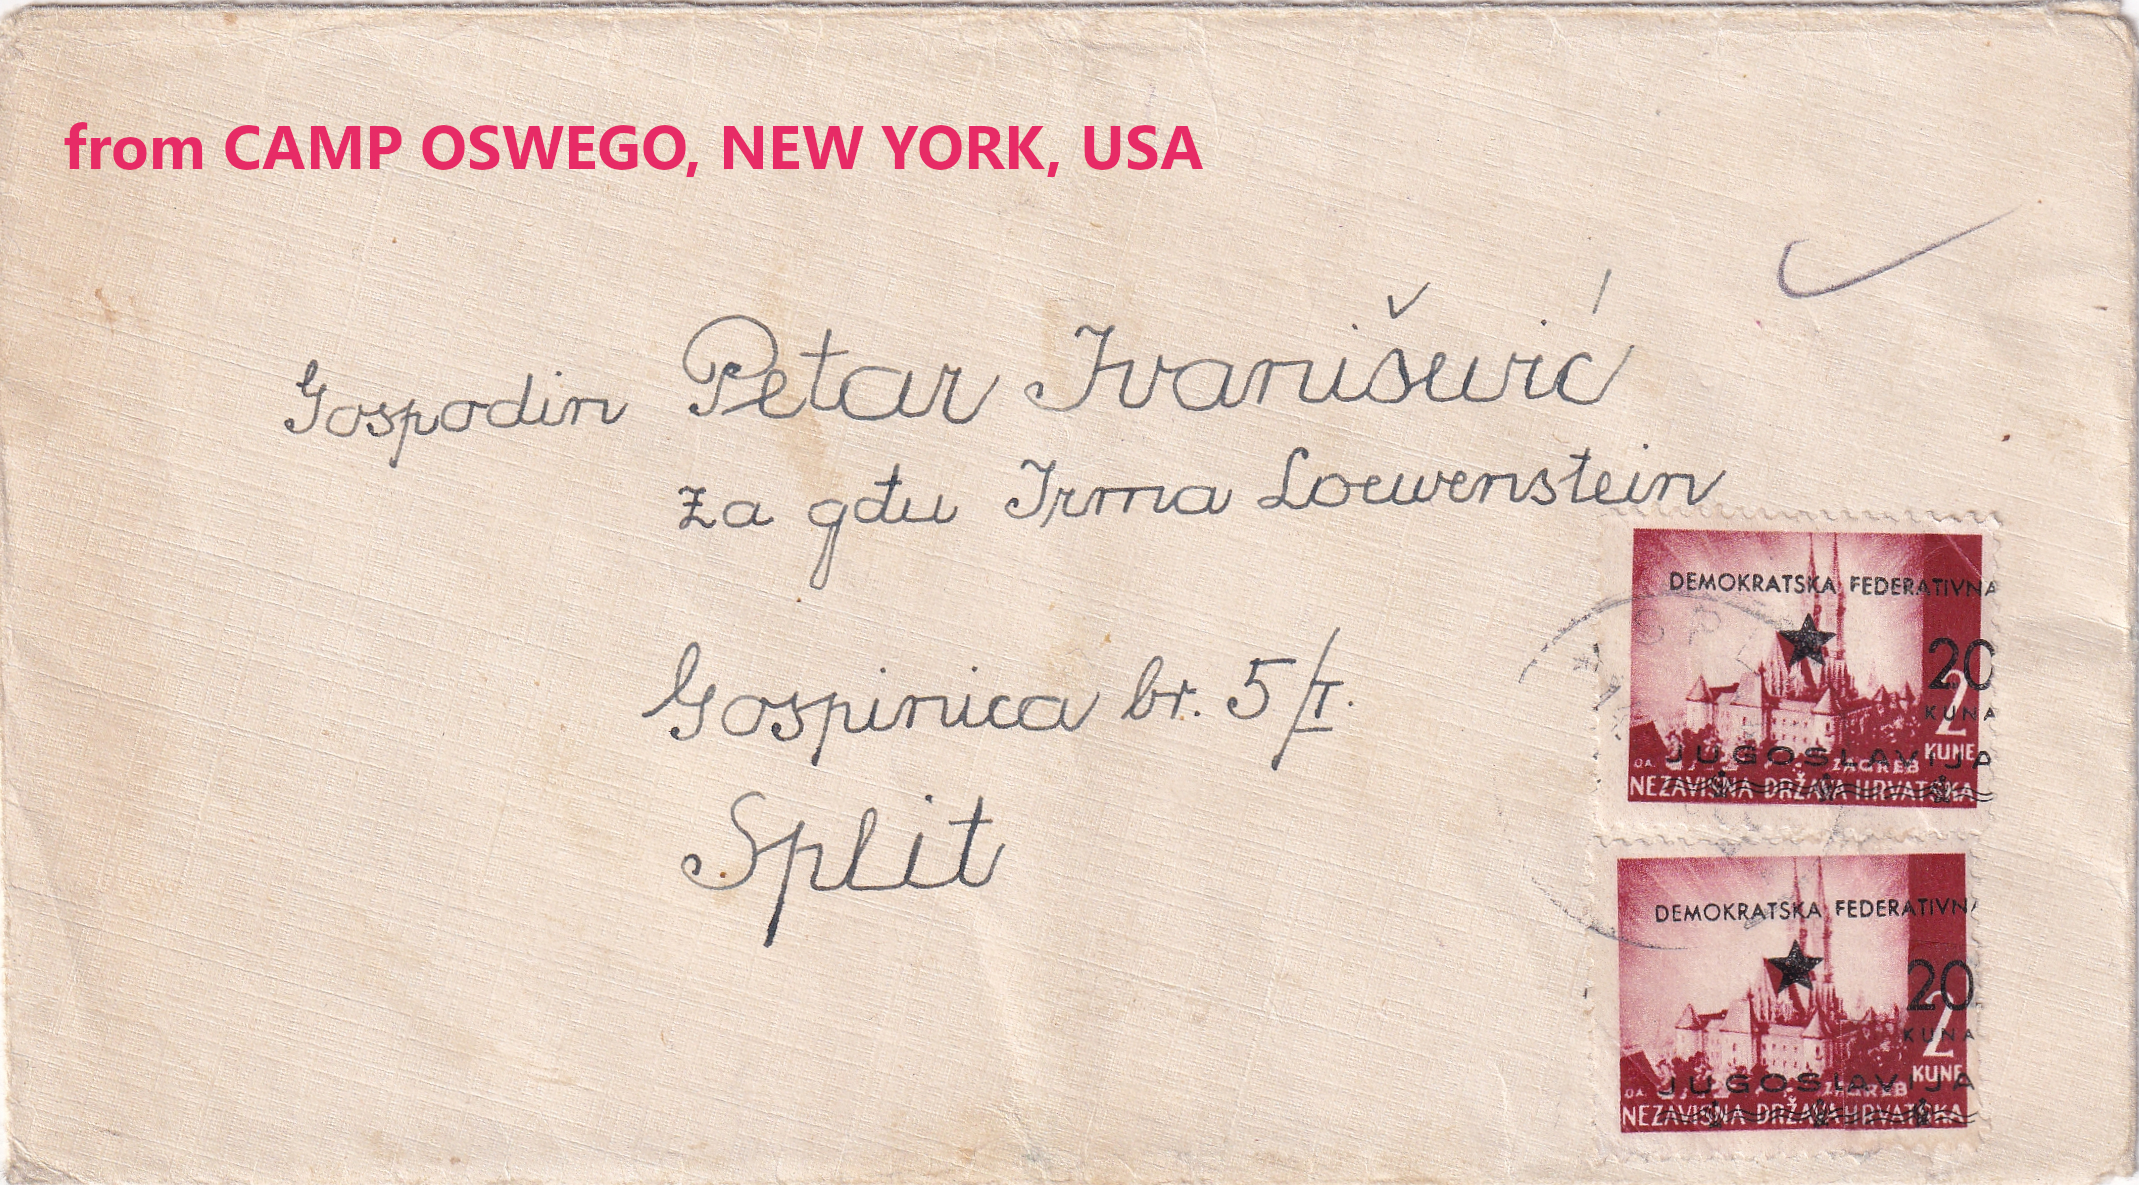 from CAMP OSWEGO, NEW YORK, USA
Gospodin Petar Ivanišević
za gđu Irma Loewenstein
Gospinica br. 5/I.
Split
DEMOKRATSKA FEDERATIVNA
20
KUNA
2
KUNE
JUGOSLAVIJA
ZAGREB
NEZAVISNA DRŽAVA HRVATSKA
DEMOKRATSKA FEDERATIVNA
20
KUNA
2
KUNE
JUGOSLAVIJA
ZAGREB
NEZAVISNA DRŽAVA HRVATSKA